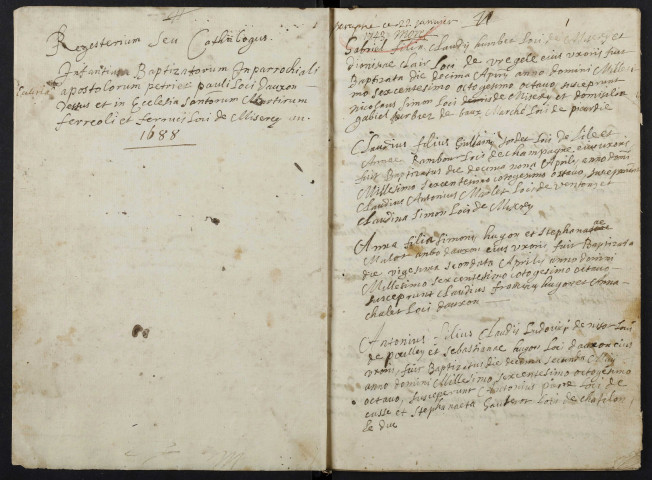 Regesterium Seu Cathalogus
Infantium Baptizatorum In parrochiali
apostolorum petri et pauli Loci dauxon
dessus et in Ecclesia Sanctorum Martirum
ferreoli et ferrucii Loci de Miserey an.
1688
ce 22 janvier
1748
Gabriel filia Claudy humbert Loci de Miserey et
dionisiae Clair Loci de eius uxoris fuit
Baptizata die decima Apry anno domini Mille-
mo sexcentesimo octogesimo octavo, susceperunt
nicolaus Simon Loci de Miserey et domicella
gabriel Loci de
Claudius filius Loci de et
Annae Bambou Loci de champagne eius uxoris
fuit Baptizatus die decima nona Aprily anno domi
Millesimo sexcentesimo octogesimo octavo, susceperunt
Claudius Antonius Loci de et
Claudina Simon Loci de Miserey
Anna filia simonis hugon et Stephanae
Malot ambo dauxon eius uxoris, fuit Baptizata
die vigesima secondata Aprily anno domini
Millesimo sexcentesimo octogesimo octavo
susceperunt Claudius hugon et Anna
chalet Loci dauxon
Antonius filius Claudii Ludovici Loci
de pouilley et Sebastianae hugon Loci dauxon eius
uxoris, fuit Baptizatus die decima secunda May
anno domini Millesimo sexcentesimo octogesimo
octavo, susceperunt Antonius Loci de
cusse et Stephaneta Loci de chatelon
le duc